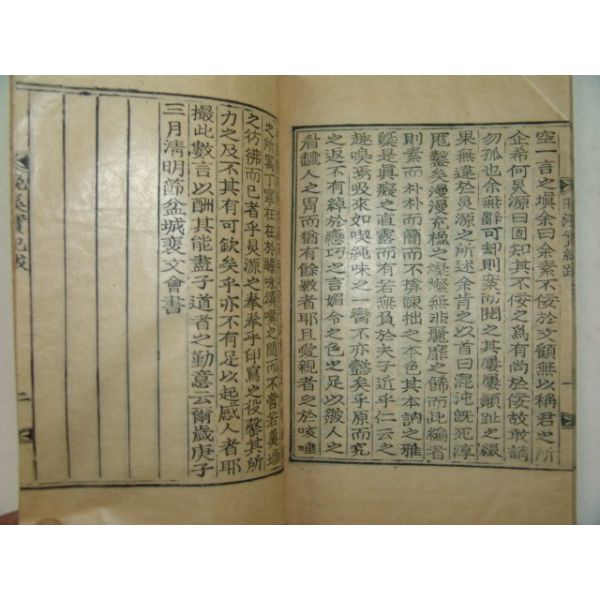 空一言之塡余曰余素不佞於文顧無以稱君之所
企希何炅源曰固知其不佞之爲有尚於佞故敢請
勿孤也余無辭可却則案而閱之其屢屢顚趾之綴
果無違於炅源之所述余肯之以首曰混沌旣死淳
厖鑿矣漫漫充楹之燦燦無非麗靡之歸而此編者
則素而朴朴而簡而不揜疎拙之本色其本訥之雅
態是眞癡之直露而有若無負於夫子近乎仁云之
趣嗅焉吸來如啜純味之一臠不亦懿矣乎原而究
之返不有綽於戀巧之言媚令之色之足以皺人之
眉齼人之胃而猶有餘數者耶且愛親者之於咳唾
之所寓丁寧在在於瞻咏頌嘆之間而不啻若羹墻
之彷彿而已者乎炅源之拳拳乎印寫之役罄其所
力之及不其有可欽矣乎亦不有足以起感人者耶
撮此數言以酬其能盡子道者之勤意云爾歲庚子
三月淸明節盆城裵文會書